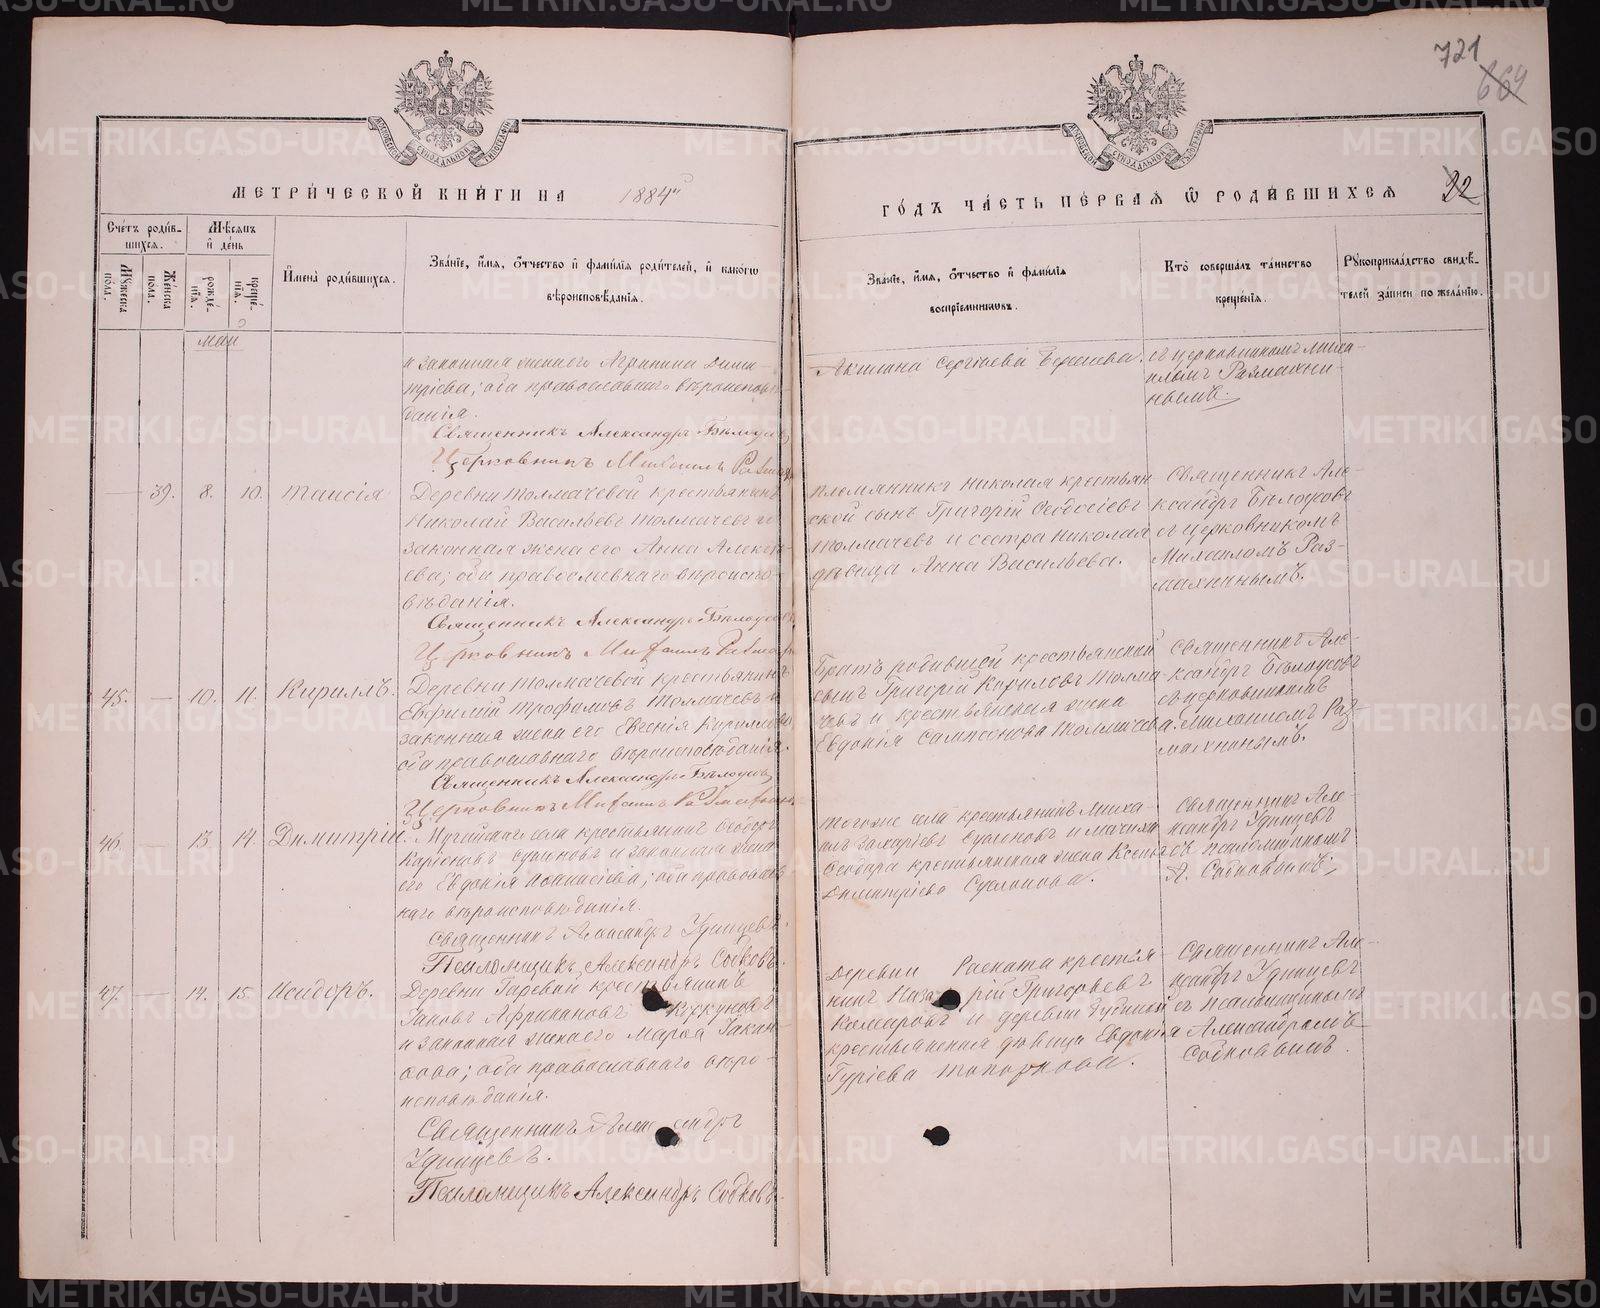 721
664
МЕТРИ́ЧЕСКОЙ КНИ́ГИ НА 1884й
ГО́ДЪ ЧА́СТЬ ПЕ́РВАЯ Ѿ РОДИ́ВШИХСЯ 22
Сче́тъ роди́в-
шихся.
Мѣ́сяцъ
и́ де́нь
Му́жеска по́ла.
Же́нска по́ла.
рожде́-
нія.
креще́-
нія.
И҆мена̀ роди́вшихся.
Зва́ніе, и҆́мя, о҆́тчество и҆ фами́лія роди́телей, и҆ како́гѡ
вѣроисповѣ́данія.
Зва́ніе, и҆́мя, о҆́тчество и҆ фами́лія
воспріе́мниковъ.
Кто̀ соверша́лъ та́инство
креще́нія.
Рукоприкла́дство свидѣ́-
телей за́писи по жела́нію.
май
и законная жена его Агрипина Дими-
тріева; оба православнаго вѣроиспов-
данія.
Священникъ Александръ Бѣлоусовъ
Церковникъ Михаилъ
Акилина Сергіева
съ церковникомъ Миха-
иломъ Размахни-
нымъ.
— 39. 8. 10. Таисія
Деревни Толмачевой крестьянинъ
Николай Васильевъ Толмачевъ и
законная жена его Анна Алексѣ-
ева; оба православнаго вѣроиспо-
вѣданія.
Священникъ Александръ Бѣлоусовъ
Церковникъ Михаилъ
племянникъ Николая крестьян
ской сынъ Григорій Ѳеодосіевъ
Толмачевъ и сестра Николая
дѣвица Анна Васильева.
Священникъ Але-
ксандръ Бѣлоусовъ
съ церковникомъ
Михаиломъ Раз-
махнинымъ.
45. — 10. 11. Кириллъ.
Деревни Толмачевой крестьянинъ
Евфимій Трофимовъ Толмачевъ и
законная жена его Евгенія Кириллова
оба православнаго вѣроисповѣданія.
Священникъ Александръ Бѣлоусовъ
Церковникъ Михаилъ Размахнинъ
Братъ родившей крестьянской
сынъ Григорій Кириловъ Толма-
чевъ и крестьянская жена
Евдокія Сампсонова Толмачева
Священникъ Але-
ксандръ Бѣлоусовъ
съ церковникомъ
Михаиломъ Раз-
махнинымъ.
46. — 13. 14. Димитрій.
села крестьянинъ Ѳеодоръ
и законная жена
его Евдокія; оба православ-
наго вѣроисповѣданія.
Священникъ Александръ Удинцевъ.
Псаломщикъ Александръ Собковъ.
Тогоже села крестьянинъ Миха-
илъ Захаріевъ и мачиха
Ѳеодора крестьянская жена Ксенія
Димитріева
Священникъ Але-
ксандръ Удинцевъ
съ псаломщикомъ
А. Собковымъ.
47. — 14. 15. Исидоръ.
Деревни Гаревой крестьянинъ
Іаковъ Африкановъ
и законная жена его Марѳа
оба православнаго вѣро-
исповѣданія.
Священникъ Александръ
Удинцевъ.
Псаломщикъ Александръ Собковъ.
Деревни Раската крестья-
нинъ Григорьевъ
Комаровъ и деревни
крестьянская дѣвица Евдокія
Гуріева Топоркова.
Священникъ Але-
ксандръ Удинцевъ
съ псаломщикомъ
Александромъ
Собковымъ.
METRIKI.GASO-URAL.RU